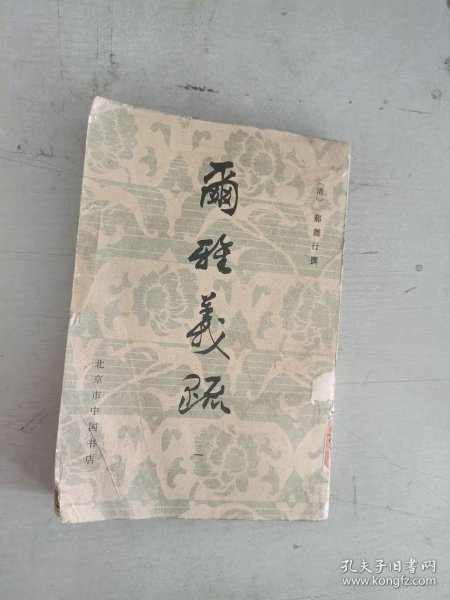 〔清〕 郝懿行撰
爾雅義疏
一
北京市中国书店
孔夫子旧书网
www.kongfz.com